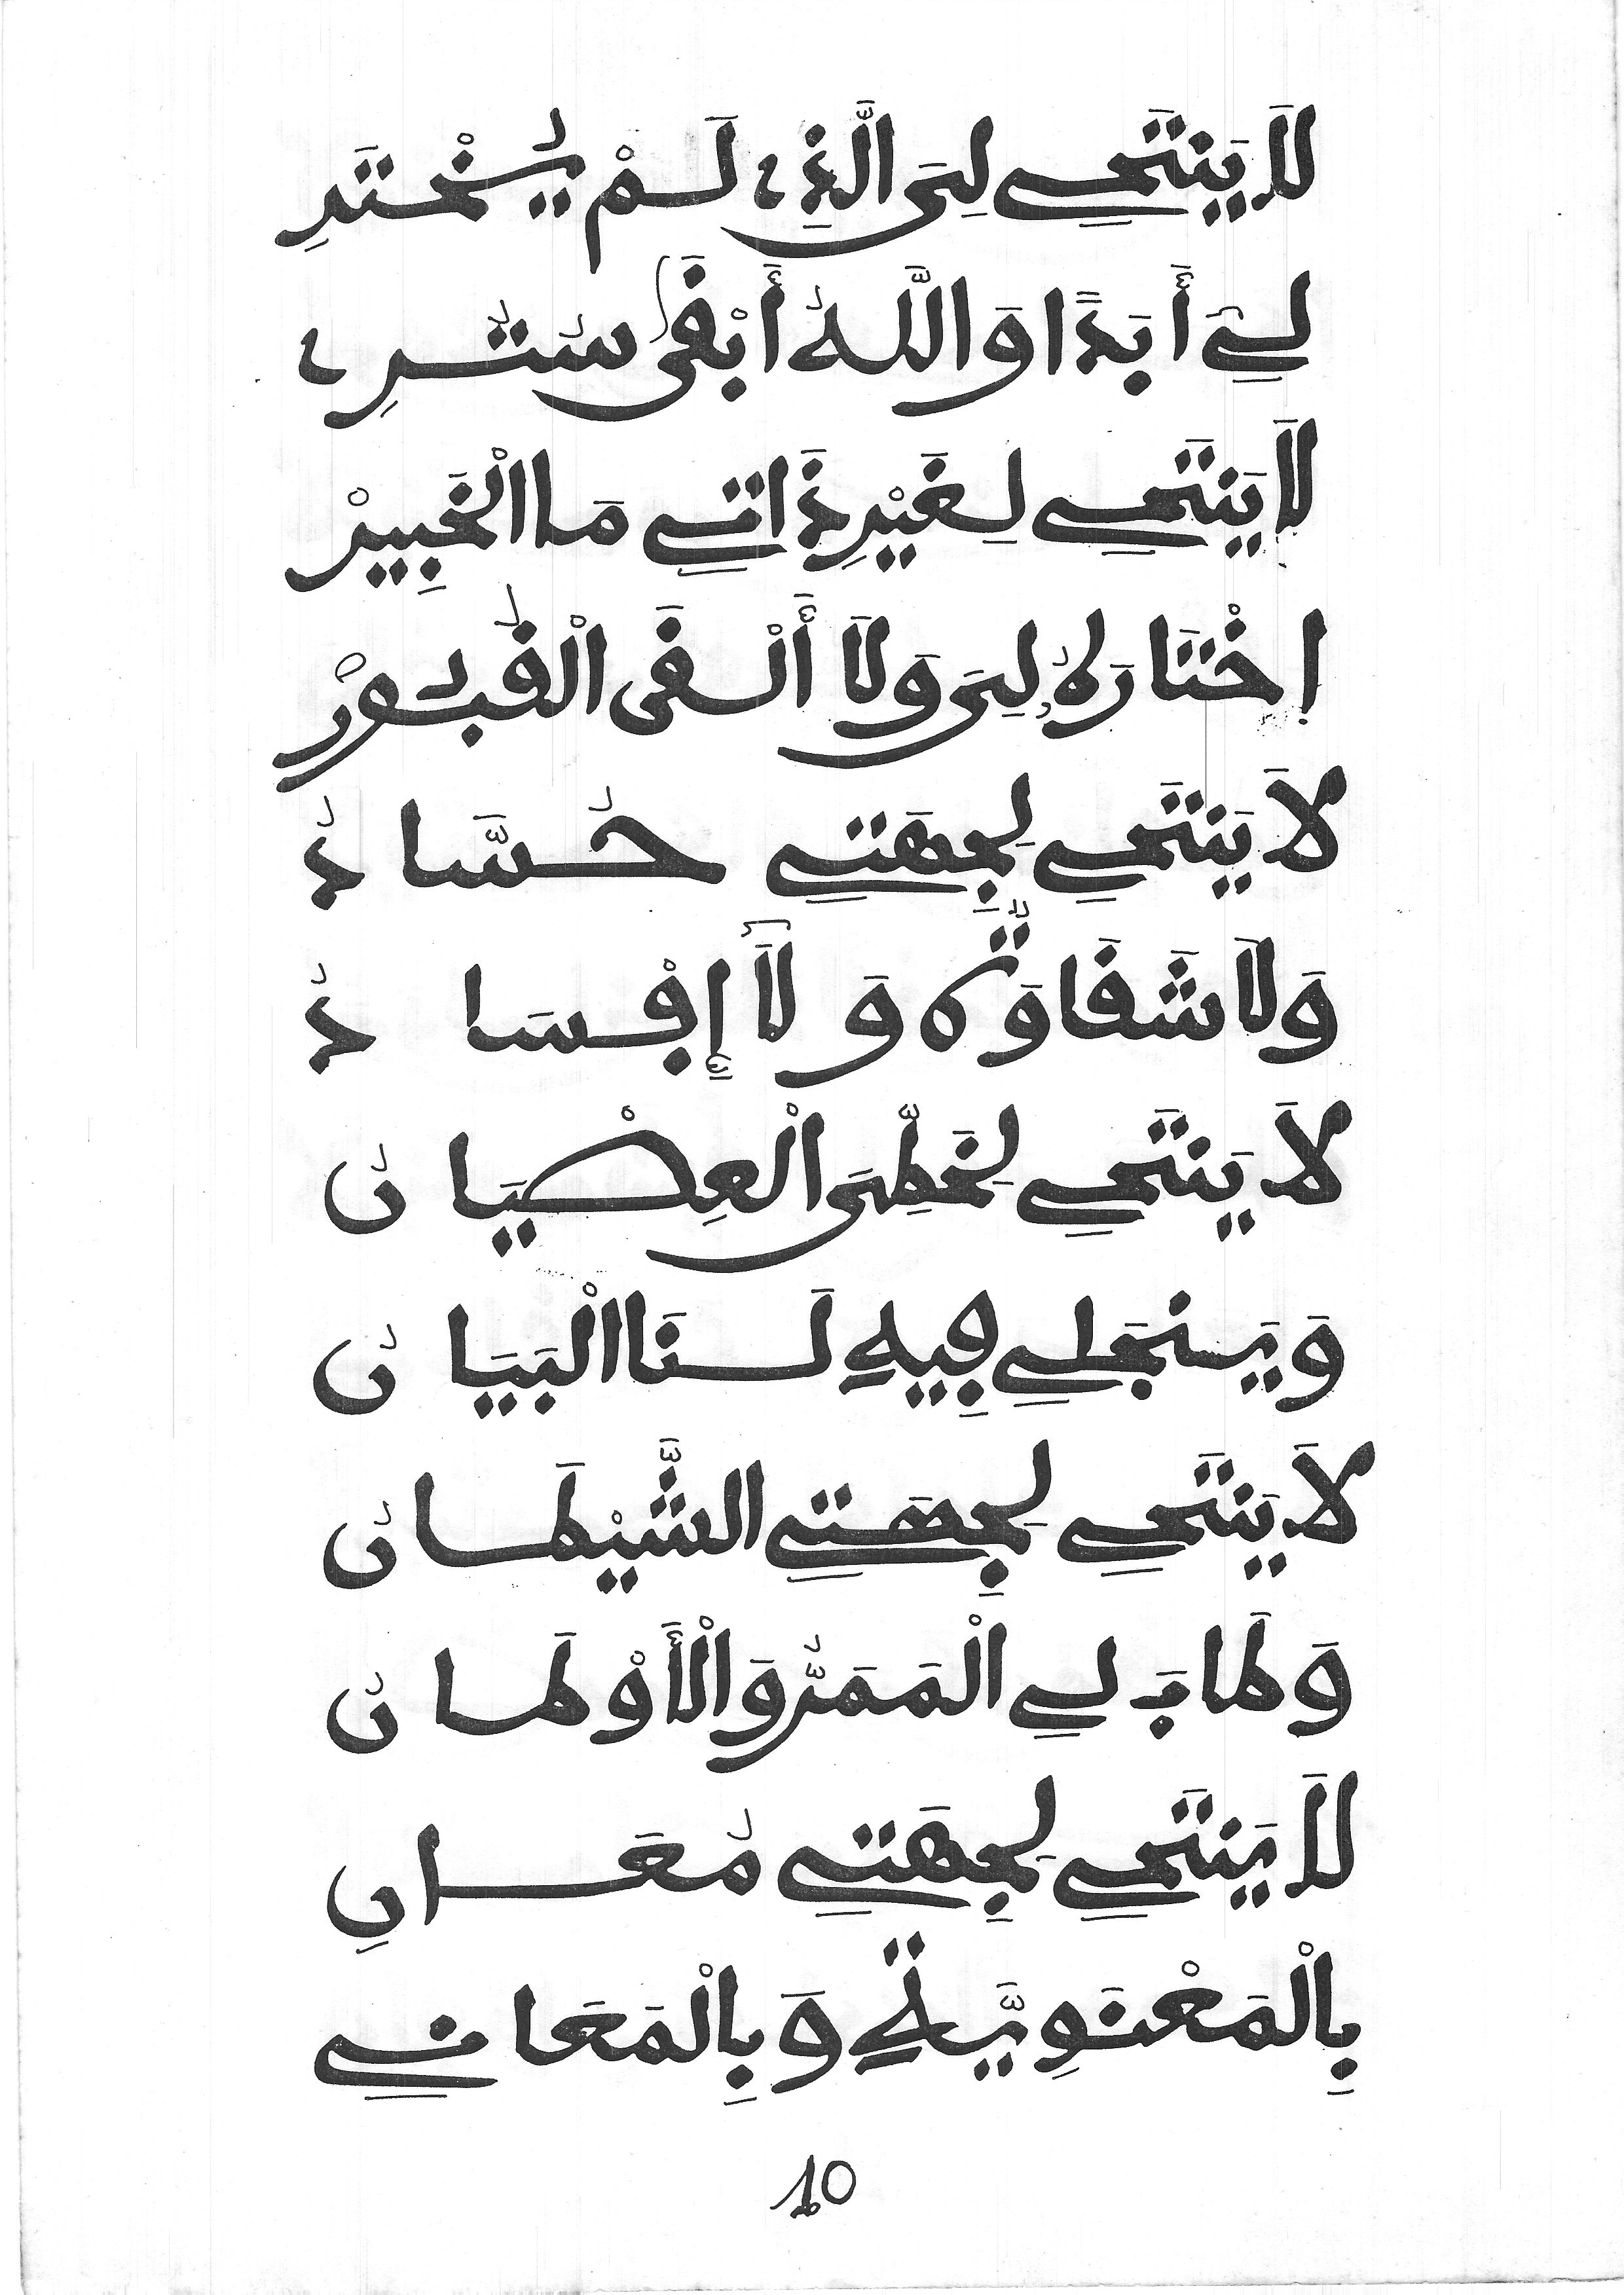 لَا يَنتَحِي لِيَ الَّذِي لَمْ يُخْتَرِ
لِي أَبَدًا وَاللَّهُ أَبْقَى سُتُرِي
لَا يَنتَحِي لِغَيْرِ ذَاتِي مَا الْخَبِيرْ
اِخْتَارَهُ لِيَ وَلَا أَلْقَى الْقُبُورْ
لَا يَنتَحِي لِجِهَتِي حُسَّادُ
وَلَا شَقَاوَةٌ وَلَا إِفْسَادُ
لَا يَنتَحِي لِخَطِّيَ الْعِصْيَانُ
وَيَنجَلِي فِيهِ لَنَا الْبَيَانُ
لَا يَنتَحِي لِجِهَتِي الشَّيْطَانُ
وَطَابَ لِي الْمَمَرُّ وَالْأَوْطَانُ
لَا يَنتَحِي لِجِهَتِي مُعَانِ
بِالْمَعْنَوِيَّةِ وَبِالْمَعَانِي
10